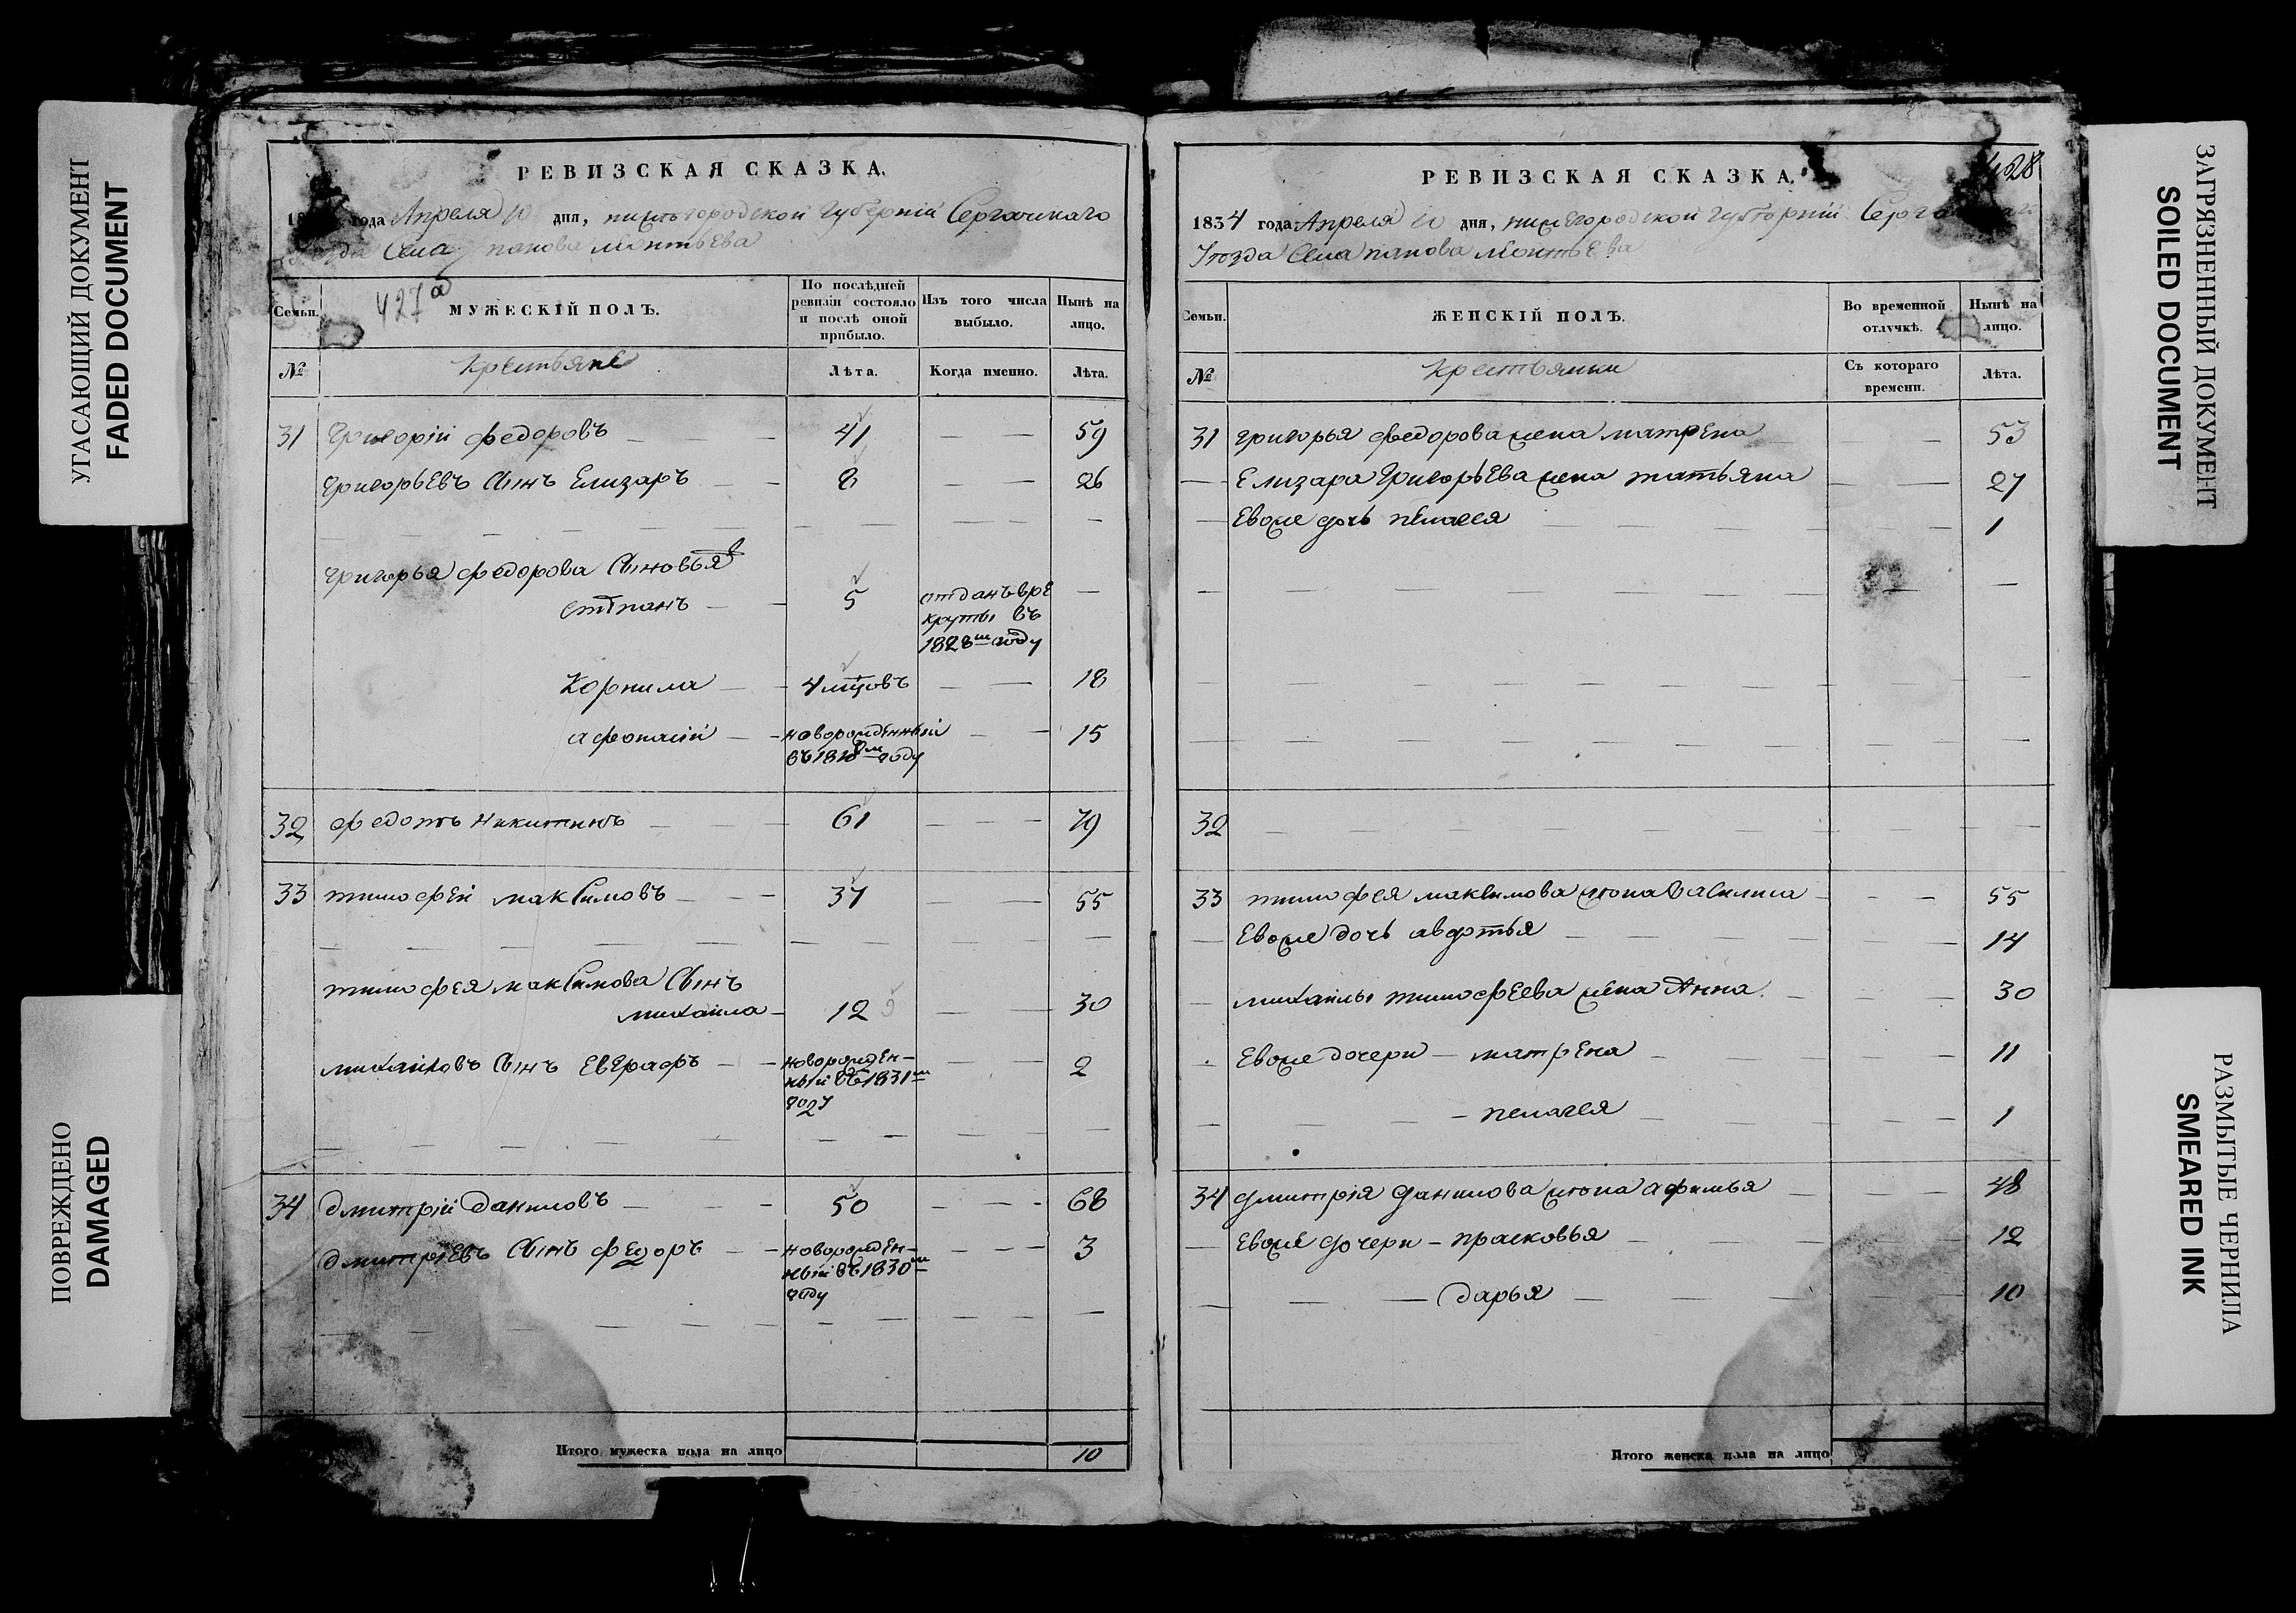 УГАСАЮЩИЙ ДОКУМЕНТ
FADED DOCUMENT
ПОВРЕЖДЕНО
DAMAGED
РЕВИЗСКАЯ СКАЗКА.
года Апреля 10 дня, нижегородской Губерній Сергачскаго
Села панова леонтьева
427а
Семьи.
МУЖЕСКІЙ ПОЛЪ.
По послѣдней ревизіи состояло и послѣ оной прибыло.
Изъ того числа выбыло.
Нынѣ на лицо.
№
Крестьяне
Лѣта.
Когда именно.
Лѣта.
31 Григорій федоровъ — — 41 — — 59
Григорьевъ Сынъ Елизаръ — — 8 — — 26
Григорья федорова Сыновья
степанъ — — 5 отданъ вре
круты въ
1828м году —
Корнила — — 4 мцовъ — — 18
афонасій — — новорожденный
въ 1818м году — — 15
32 федотъ Никитинъ — — 61 — — — 79
33 тимофей максимовъ — — — 37 — — 55
тимофея максимова Сынъ
михаила — 12 — — 30
михайловъ Сынъ Евграфъ — — новорожден-
ный въ 1831м
году — — 2
34 дмитрій даниловъ — — — 50 — — — 68
дмитріевъ Сынъ федоръ — — новорожден-
ный въ 1830м
году — — — 3
Итого мужеска пола на лицо 10
428
РЕВИЗСКАЯ СКАЗКА.
1834 года Апреля 10 дня, нижегородской губерній
Уезда Села панова леонтьева
Семьи.
ЖЕНСКІЙ ПОЛЪ.
Во временной отлучкѣ.
Нынѣ на лицо.
№
Крестьянки
Съ котораго времени.
Лѣта.
31 григорья федорова жена матрена — — 53
— Елизара Григорьева жена татьяна — — 27
— Евоже дочь пелагея — — 1
32
33 тимофея максимова жена Василиса — — — 55
— Евоже дочь авдотья — — 14
— михаилы тимофеева жена Анна — — — 30
Евоже дочери — матрена — — — 11
— пелагея — — — 1
34 дмитрія данилова жена афимья — — — 48
— Евоже дочери — прасковья — — 12
— дарья — — 10
Итого женска пола на лицо
ЗАГРЯЗНЕННЫЙ ДОКУМЕНТ
SOILED DOCUMENT
РАЗМЫТЫЕ ЧЕРНИЛА
SMEARED INK